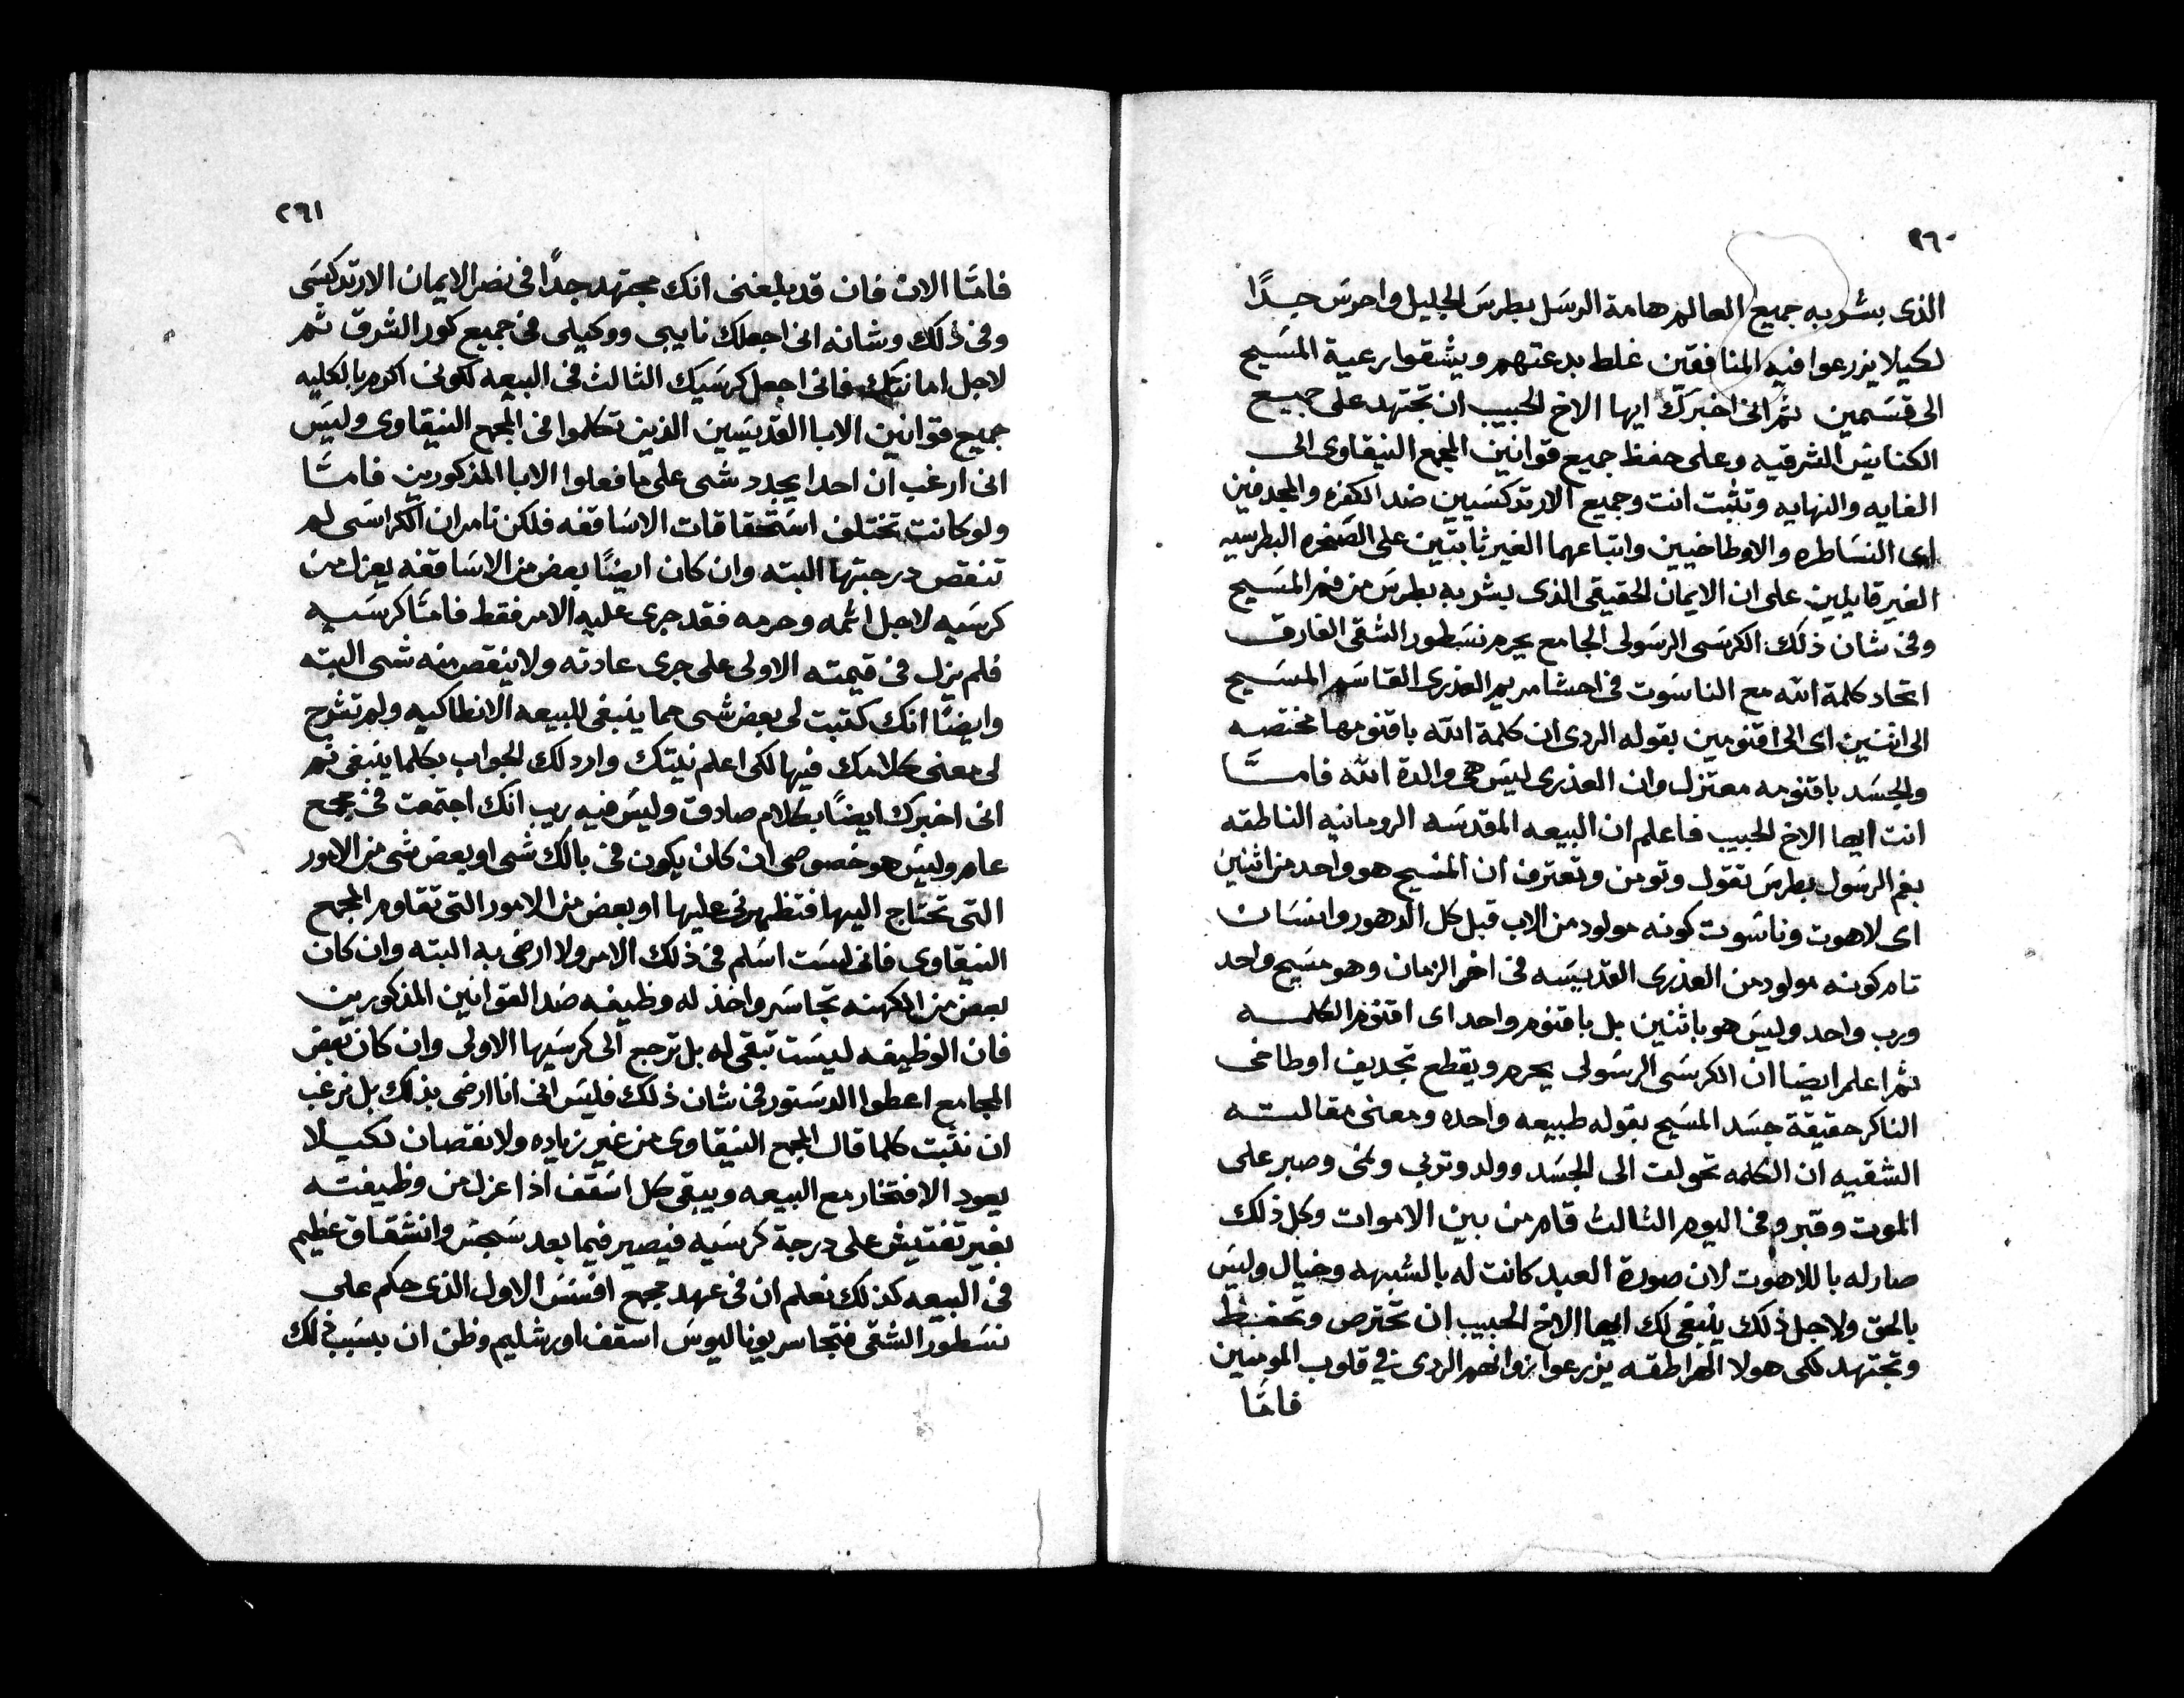 ٢٦٠
الذى بشر به جميع العالم هامة الرسل بطرس الجليل واحرس جدًا
لكيلا يزرعوا فيه المنافقين غلط بدعتهم ويشقوا رعية المسيح
الى قسمين ثم انى اخبرك ايها الاخ الحبيب ان تجتهد على جميع
الكنايس الشرقيه وعلى حفظ جميع قوانين المجمع النيقاوى الى
الغايه والنهايه وتثبت انت وجميع الارتدكسيين ضد الكفره والمجدفين
اى النساطره والاوطاخيين واتباعهما الغير ثابتين على الصخره البطرسيه
الغير قابلين على ان الايمان الحقيقى الذى بشر به بطرس من فم المسيح
وفى شان ذلك الكرسى الرسولى الجامع يحرم نسطور الشقى الفارق
اتحاد كلمة الله مع الناسوت فى احشا مريم العذرى القاسم المسيح
الى اثنين اى الى اقنومين بقوله الردى ان كلمة الله باقنومها مختصه
والجسد باقنومه معتزل وان العذرى ليس هى والدة الله فامّا
انت ايها الاخ الحبيب فاعلم ان البيعه المقدسه الرومانيه الناطقه
بفم الرسول بطرس تقول وتومن وتعترف ان المسيح هو واحد من اثنين
اى لاهوت وناسوت كونه مولود من الاب قبل كل الدهور وانسان
تام كونه مولود من العذرى القديسه فى اخر الزمان وهو مسيح واحد
ورب واحد وليس هو باثنين بل باقنوم واحد اى اقنوم الكلمه
ثم اعلم ايضا ان الكرسى الرسولى يحرم ويقطع تجديف اوطاخى
الناكر حقيقة جسد المسيح بقوله طبيعه واحده ومعنى مقالته
الشقيه ان الكلمه تحولت الى الجسد وولد وتربى ونمى وصبر على
الموت وقبر وفى اليوم الثالث قام من بين الاموات وكل ذلك
صار له باللاهوت لان صورة العبد كانت له بالشبهه وخيال وليس
بالحق ولاجل ذلك ينبغى لك ايها الاخ الحبيب ان تحترص وتحفظ
وتجتهد لكى هولا الهراطقه يزرعوا زوانهم الردى فى قلوب المومنين
فامّا
٢٦١
فامّا الان فان قد بلغنى انك مجتهد جدًا فى نصر الايمان الارتدكسى
وفى ذلك وشانه انى اجعلك نايبى ووكيلى فى جميع كور الشرق ثم
لاجل امانتك فانى اجعل كرسيك الثالث فى البيعه لكونى اكرم بالكليه
جميع قوانين الابا القديسين الذين تكلموا فى المجمع النيقاوى وليس
انى ارغب ان احدا يجدد شى على ما فعلوا الابا المذكورين فامّا
ولو كانت تختلف استحقاقات الاساقفه فلكن نامر ان الكراسى لم
تنقص درجتها البته وان كان ايضًا بعض من الاساقفه يعزل من
كرسيه لاجل اثمه وحرمه فقد جرى عليه الامر فقط فامّا كرسيه
فلم يزل فى قيمته الاولى على جرى عادته ولا ينقص منه شى البته
وايضًا انك كتبت لى بعض شى مما ينبغى للبيعه الانطاكيه ولم تشرح
لى معنى كلامك فيها لكى اعلم نيتك وارد لك الجواب بكلما ينبغى ثم
انى اخبرك ايضًا بكلام صادق وليس فيه ريب انك اجتمعت فى مجمع
عام وليس هو خصوصى ان كان يكون فى بالك شى او بعض شى من الامور
التى تحتاج اليها فتظهرنى عليها او بعض من الامور التى تقاوم المجمع
النيقاوى فانى لست اسلم فى ذلك الامر ولا ارضى به البته وان كان
بعض من الكهنه تجاسر واخذ له وظيفه ضد القوانين المذكورين
فان الوظيفه ليست تبقى له بل ترجع الى كرسيها الاولى وان كان بعض
المجامع اعطوا الدستور فى شان ذلك فليس انى انا ارضى بذلك بل نرغب
ان نثبت كلما قال المجمع النيقاوى من غير زياده ولا نقصان لكيلا
يعود الافتخار مع البيعه ويبقى كل اسقف اذا عزل من وظيفته
بغير تفتيش على درجة كرسيه فيصير فيما بعد سجس وانشقاق عظيم
فى البيعه كذلك نعلم ان فى عهد مجمع افسس الاول الذى حكم على
نسطور الشقى فتجاسر يوناليوس اسقف اورشليم وظن ان بسبب ذلك